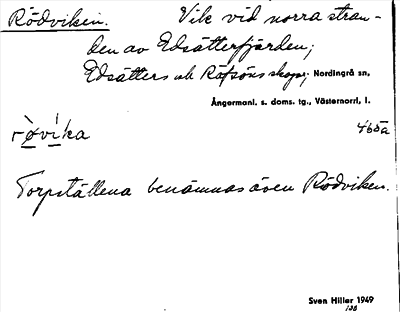 Rödviken. Vik vid norra stran-
den av Edsätterfjärden;
Edsätters och Räfsöns skogs; Nordingrå sn,
Ångermanl. s. doms. tg., Västernorrl, l.
røvika 465a
Torpställena benämnas även Rödviken.
Sven Hiller 1949
128